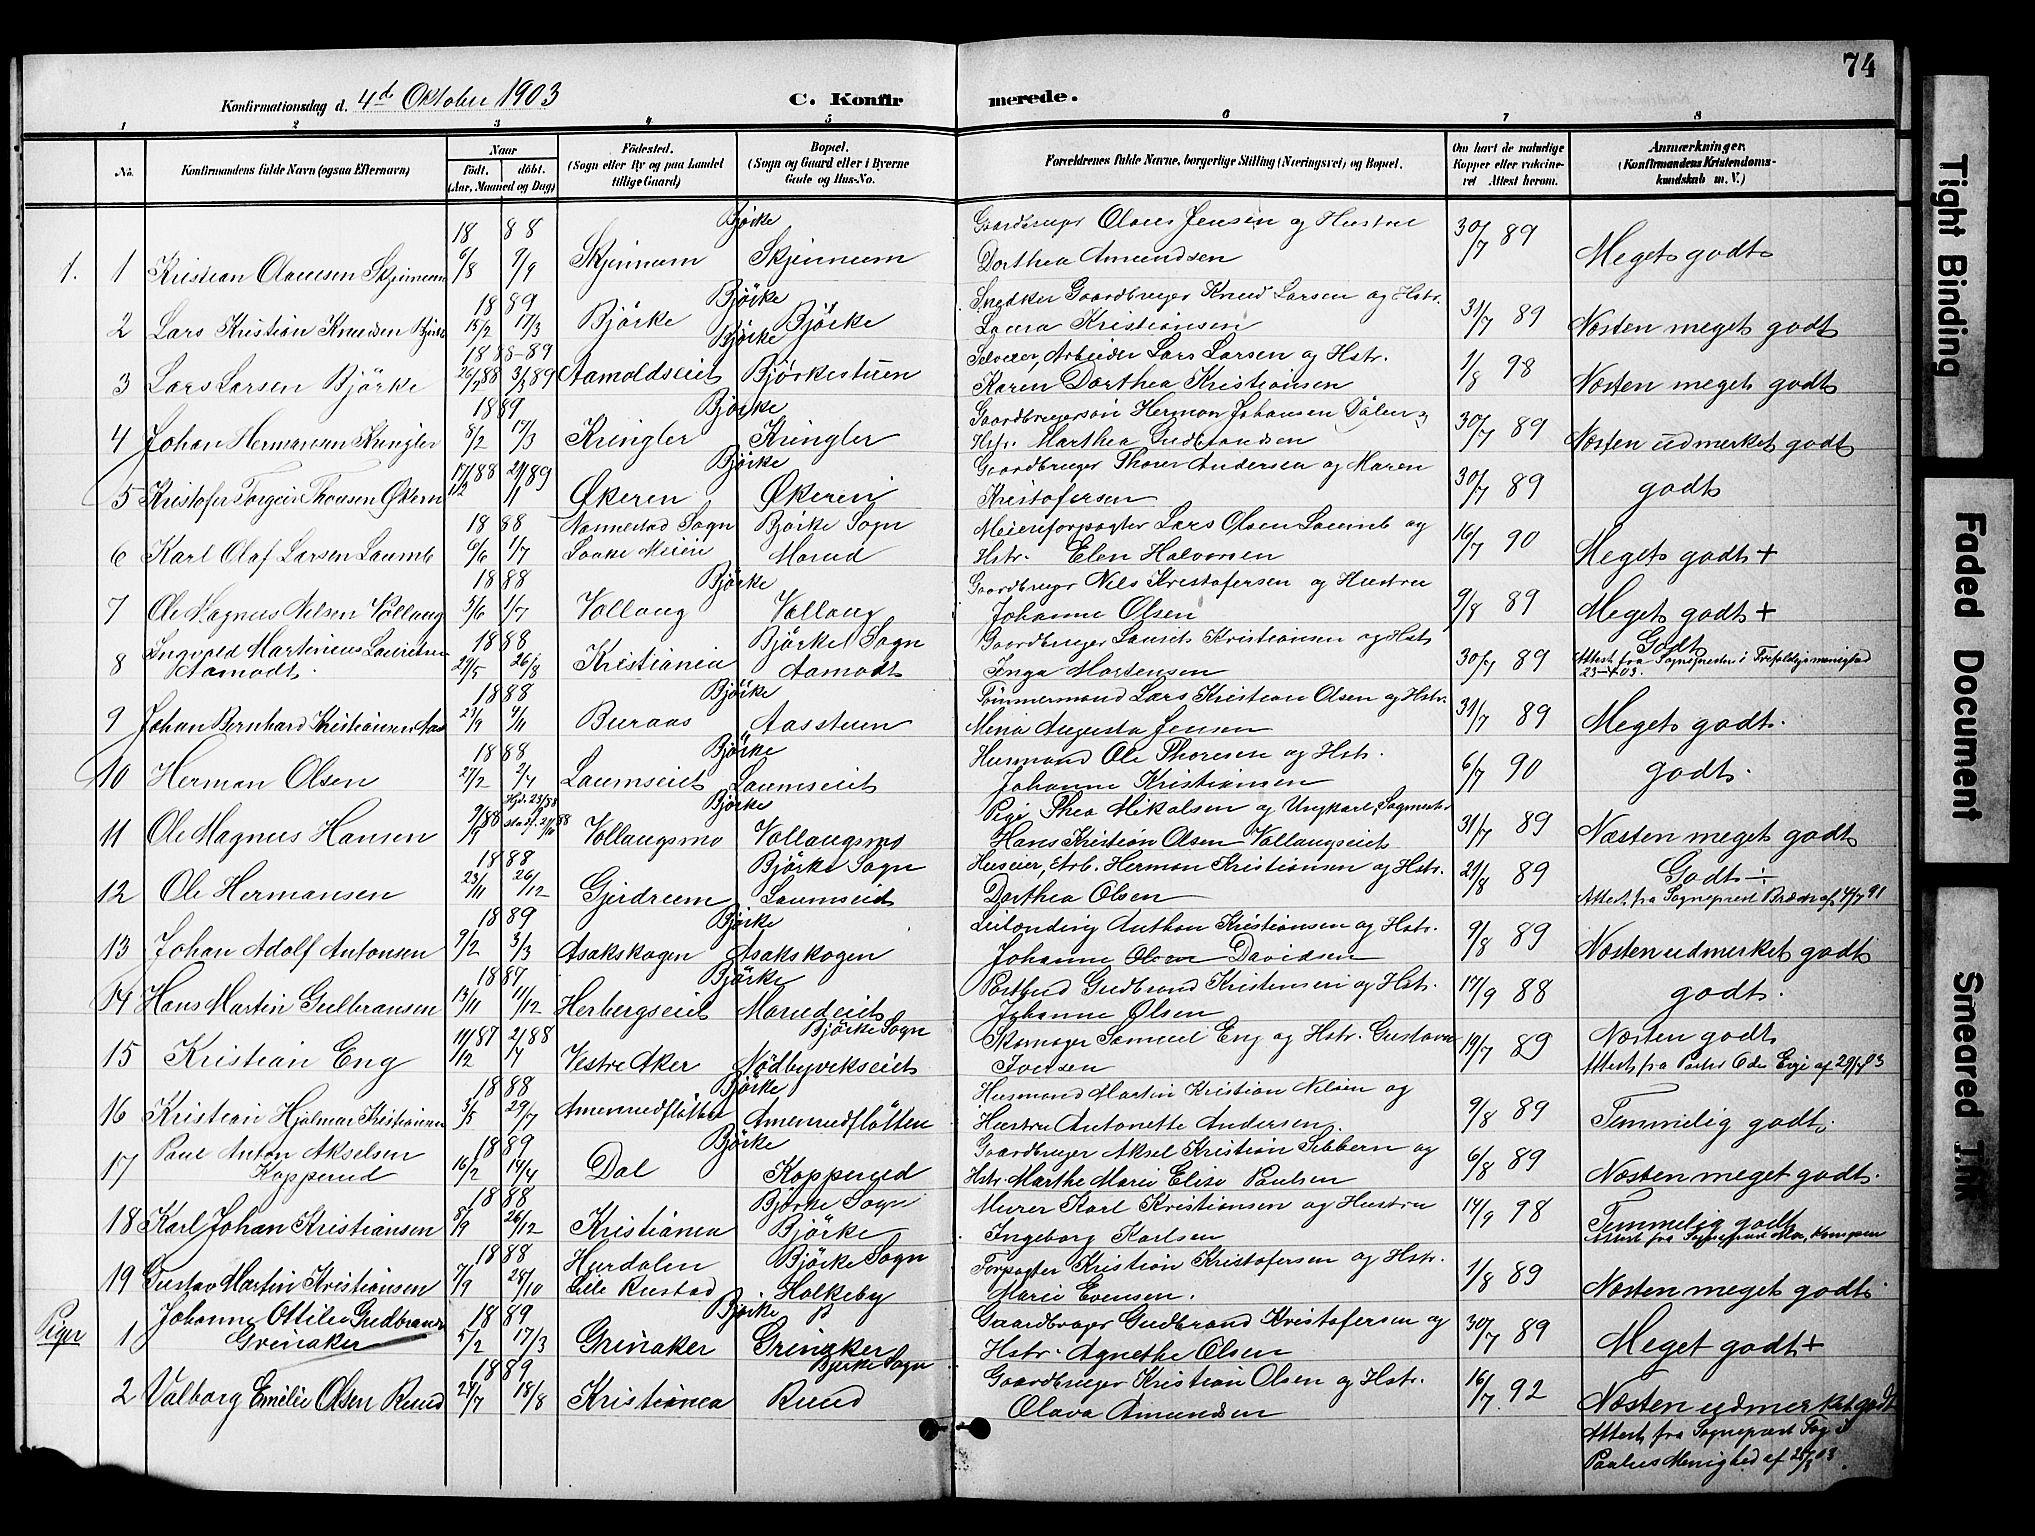 74
Konfirmationsdag d. 4d Oktober 1903
C. Konfirmerede.
1 2 3 4 5 6 7 8
No.
Konfirmandens fulde Navn (ogsaa Efternavn)
Naar
födt. döbt.
(Aar, Maaned og Dag)
Födested.
(Sogn eller By og paa Landet
tillige Gaard)
Bopæl.
(Sogn og Gaard eller i Byerne
Gade og Hus-No.
Forældrenes fulde Navne, borgerlige Stilling (Næringsvei) og Bopæl.
Om havt de naturlige
Kopper eller vaccine-
ret Attest herom.
Anmærkninger.
(Konfirmandens Kristendoms-
kundskab m. V.)
18 88 Bjørke Gaardbruger Olaus Jensen og Hustru
1. 1 Kristian Olausen Skjennum 6/8 9/9 Skjennum Skjennum Dorthea Amundsen 30/7 89 Meget godt
18 89 Bjørke Snedker Gaardbruger Knud Larsen og Hstr.
2 Lars Kristian Knudsen Bjørke 15/2 17/3 Bjørke Bjørke Laura Kristiansen 31/7 89 Næsten meget godt
1888-89 Bjørke Selveier, Arbeider Lars Larsen og Hstr.
3 Lars Larsen Bjørke 88 89 Aamoldseiet Bjørkestuen Karen Dorthea Kristiansen 1/8 98 Næsten meget godt
1889 Bjørke Gaardbrugersøn Herman Johansen Dalen og
4 Johan Hermansen Kringler 8/2 17/3 Kringler Kringler Hstr. Marthea Gudbrandsen 30/7 89 Næsten udmerket godt
Bjørke Gaardbruger Thorer Andersen og Maren
5 Kristofer Torgeir Thorsen Økern 17/12 88 89 Økeren Økeren Kristofersen 30/7 89 godt
18 88 Nannestad Sogn Bjørke Sogn Meieriforpagter Lars Olsen Laumb og
6 Karl Olaf Larsen Laumb 6/6 1/7 Meieri Morud Hstr. Elen Halvorsen 16/7 90 Meget godt +
18 88 Bjørke Gaardbruger Nils Kristofersen og Hustru
7 Ole Magnus Nilsen Vollaug 5/6 1/7 Vollaug Vollaug Johanne Olsen 9/8 89 Meget godt +
Ingvald Martinius Lauritsen 18 88 Bjørke Sogn Gaardbruger Laurits Kristiansen og Hstr Godt
8 Aamodt. 29/5 26/8 Kristiania Aamodt Inga Mortensen 30/7 89 Attest fra Sognepresten i Trefoldigsmenighed
18 88 Bjørke Tømmermand Lars Kristian Olsen og Hstr.
9 Johan Bernhard Kristiansen Aas 23/9 4/11 Buraas Aasstuen Mina Augusta Jensen 31/7 89 Meget godt.
18 88 Bjørke Husmand Ole Thoresen og Hstr.
10 Herman Olsen 27/2 2/4 Laumseiet Laumseiet Johanne Kristiansen 6/7 90 godt.
Bjørke Pige Thea Mikalsen og Ungkarl, Sagmester
11 Ole Magnus Hansen 88 Vollaugsmo Vollaugsmo Hans Kristian Olsen Vollaugseiet 31/7 89 Næsten meget godt
18 88 Bjørke Sogn Huseier, Arb. Herman Kristiansen og Hstr. Godt ÷
12 Ole Hermansen 23/11 26/12 Gjerdrum Laumseiet Dorthea Olsen 21/8 89 Attest fra Sogneprest
18 89 Bjørke Leilending Anthon Kristiansen og Hstr.
13 Johan Adolf Antonsen 9/2 3/3 Asakskogen Asakskogen Johanne Olsen Davidsen 9/8 89 Næsten udmerket godt
18 87 Bjørke Postbud Gudbrand Kristensen og Hstr.
14 Hans Martin Gulbransen 13/11 11/12 Herbergseiet Morudeiet Johanne Olsen 17/9 88 godt.
87 88 Bjørke Sogn Skomager Samuel Eng og Hstr. Gustava Næsten godt
15 Kristian Eng Vestre Aker Nødbyvekseiet Iversen 19/7 89 Attest fra
18 88 Bjørke Husmand Martin Kristian Nilsen og
16 Kristian Hjalmar Kristiansen 3/5 29/7 Amerudfløtten Amerudfløtten Hustru Antonette Andersen. 9/8 89 Temmelig godt.
Paul Anton Akselsen 18 89 Bjørke Gaardbruger Aksel Kristian Sebbern og
17 Kopperud 16/2 14/4 Dal Kopperud Hstr. Marthe Marie Elise Paulsen 6/8 89 Næsten meget godt.
18 88 Bjørke Sogn Murer Karl Kristiansen og Hustru
18 Karl Johan Kristiansen 8/9 26/12 Kristiania Bjørke Ingeborg Karlsen 14/9 98 Temmelig godt
18 88 Hurdalen Bjørke Sogn Forpagter Kristian Kristofersen og Hstr.
19 Gustav Martin Kristiansen 7/9 28/10 Lille Rustad Holkeby Marie Evensen. 1/8 89 Næsten meget godt.
Piger Johanne Ottilie Gudbrands 18 89 Bjørke Gaardbruger Gudbrand Kristofersen og
1 Grinaker 5/2 17/3 Grinaker Grinaker Hstr. Agnethe Olsen 30/7 89 Meget godt +
18 89 Bjørke Sogn Gaardbruger Kristian Olsen og Hstr.
2 Valborg Emilie Olsen Ruud 24/7 18/8 Kristiania Ruud Olava Amundsen 16/7 92 Næsten udmerket godt
Attest fra Sogneprest i
Paulus Menighed af
Tight Binding
Faded Document
Smeared Ink